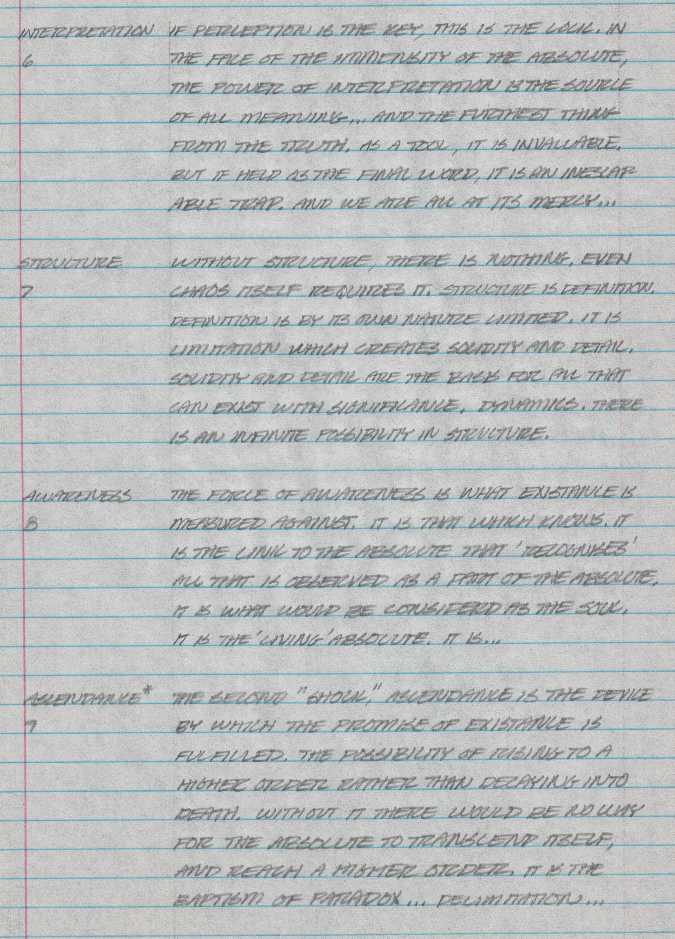 INTERPRETATION IF PERCEPTION IS THE KEY, THIS IS THE LOCK. IN
6 THE FACE OF THE IMMENSITY OF THE ABSOLUTE,
THE POWER OF INTERPRETATION IS THE SOURCE
OF ALL MEANING... AND THE FURTHEST THING
FROM THE TRUTH. AS A TOOL, IT IS INVALUABLE.
BUT IF HELD AS THE FINAL WORD, IT IS AN INESCAP
ABLE TRAP. AND WE ARE ALL AT ITS MERCY...
STRUCTURE WITHOUT STRUCTURE, THERE IS NOTHING. EVEN
7 CHAOS ITSELF REQUIRES IT. STRUCTURE IS DEFINITION.
DEFINITION IS BY ITS OWN NATURE LIMITED. IT IS
LIMITATION WHICH CREATES SOLIDITY AND DETAIL.
SOLIDITY AND DETAIL ARE THE BASIS FOR ALL THAT
CAN EXIST WITH SIGNIFICANCE. DYNAMICS. THERE
IS AN INFINITE POSSIBILITY IN STRUCTURE.
AWARENESS THE FORCE OF AWARENESS IS WHAT EXISTANCE IS
8 MEASURED AGAINST. IT IS THAT WHICH KNOWS. IT
IS THE LINK TO THE ABSOLUTE THAT 'RECOGNISES'
ALL THAT IS OBSERVED AS A PART OF THE ABSOLUTE.
IT IS WHAT WOULD BE CONSIDERD AS THE SOUL.
IT IS THE 'LIVING' ABSOLUTE. IT IS...
ASCENDANCE* THE SECOND "SHOCK," ASCENDANCE IS THE DEVICE
9 BY WHICH THE PROMISE OF EXISTANCE IS
FULFILLED. THE POSSIBILITY OF RISING TO A
HIGHER ORDER RATHER THAN DECAYING INTO
DEATH. WITHOUT IT THERE WOULD BE NO WAY
FOR THE ABSOLUTE TO TRANSCEND ITSELF,
AND REACH A HIGHER ORDER. IT IS THE
BAPTISM OF PARADOX... DELIMITATION...